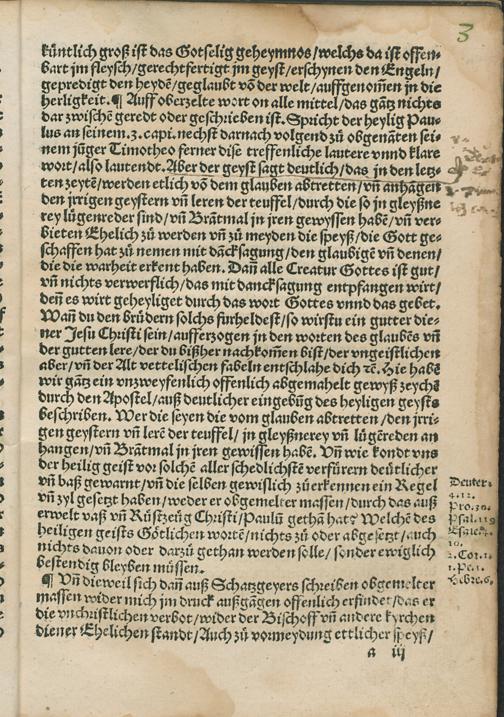 3
küntlich groß ist das Gotselig geheymnos/welchs da ist offen-
bart jm fleysch/gerechtfertigt jm geyst/erschynen den Engeln/
gepredigt den heydē/geglaubt vō der welt/auffgenom̄en in die
herligkeit.¶ Auff oberzelte wort on alle mittel/das gātz nichts
dar zwischē geredt oder geschrieben ist. Spricht der heylig Pau-
lus an seinem.3.capi.nechst darnach volgend zů obgenāten sei-
nem jūger Timotheo ferner dise treffenliche lautere vnnd klare
wort/also lautendt. Aber der geyst sagt deutlich/das jn den letz-
ten zeytē/werden etlich vō dem glauben abtretten/vn̄ anhangen
den jrrigen geystern vn̄ leren der teuffel/durch die so jn gleyßne
rey lügenreder sind/vn̄ Brātmal jn jren gewyssen habē/vn̄ ver-
bieten Ehelich zů werden vn̄ zů meyden die speyß/die Gott ge-
schaffen hat zů nemen mit dācksagung/den glaubigē vn̄ denen/
die die warheit erkent haben. Dan̄ alle Creatur Gottes ist gut/
vn̄ nichts verwerflich/das mit dancksagung entpfangen wirt/
den̄ es wirt geheyliget durch das wort Gottes vnnd das gebet.
Wan̄ du den brüdern solchs fürheldest/so wirstu ein gutter die-
ner Jesu Christi sein/aufferzogen jn den worten des glaubēs vn̄
der gutten lere/der du bißher nachkom̄en bist/der vngeistlichen
aber/vn̄ der Alt vettelischen fabeln entschlahe dich ꝛē. Hie habē
wir gātz ein vnzweyfenlich offenlich abgemahelt gewyß zeychē
durch den Apostel/auß deutlicher eingebūg des heyligen geysts
beschriben. Wer die seyen die vom glauben abtretten/den jrri-
gen geystern vn̄ lerē der teuffel/jn gleyßnerey vn̄ lügēreden an
hangen/vn̄ Brātmal in jren gewissen habē. Vn̄ wie kondt vns
der heilig geist vor solchē aller schedlichstē verfürern deütlicher
vn̄ baß gewarnt/vn̄ die selben gewislich zůerkennen ein Regel
vn̄ zyl gesetzt haben/weder er obgemelter massen/durch das auß
erwelt vaß vn̄ Rüstzeüg Christi/Paulū gethā hat? Welchē des
heiligen geists Götlichen wortē/nichts zů oder abgesetzt/auch
nichts dauon oder darzů gethan werden solle/sonder ewiglich
bestendig bleyben müssen.
¶ Vn̄ dieweil sich dan̄ auß Schatzgeyers schreiben obgemelter
massen wider mich jm druck außgāgen offenlich erfindet/das er
die vnchristlichen verbot/wider der Bischoff vn̄ andere kyrchen
diener Ehelichen standt/Auch zů vormeydung ettlicher speyß/
a iij
Deuter.
4.12.
Pro.30.
Psal.119
10.
2.Cor.1.
1.Pe.1.
Hebre.6.